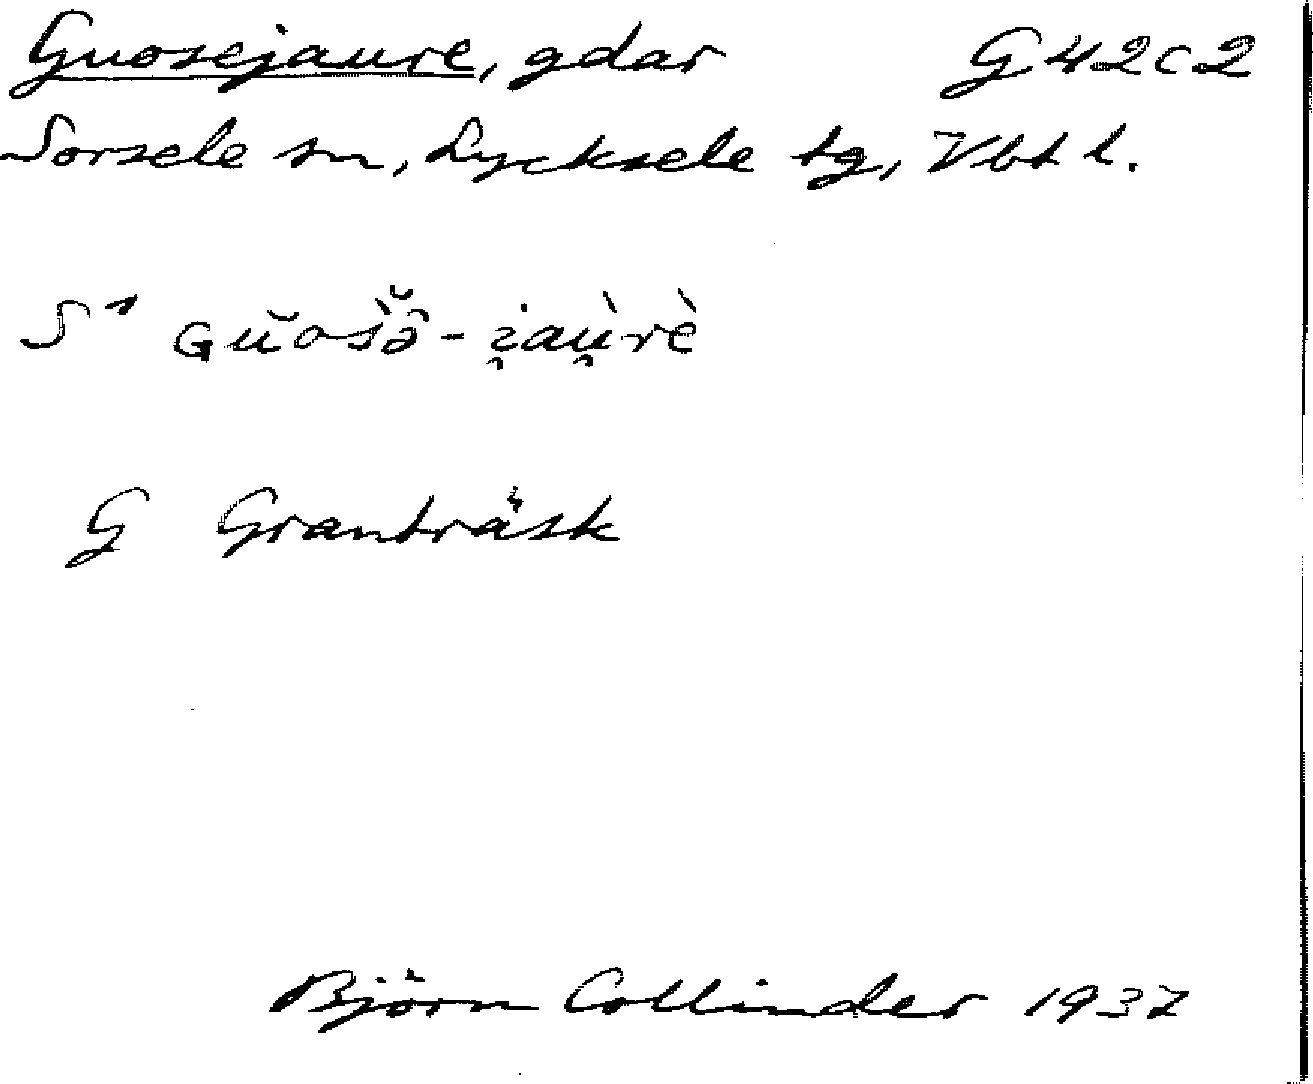 Guosejaure, gdar G 42 c 2
Sorsele sn, Lycksele tg, Vbt l.
S¹ Gŭos̀ə̑̆-i̯aù̯rè
G Granträsk
Björn Collinder 1937